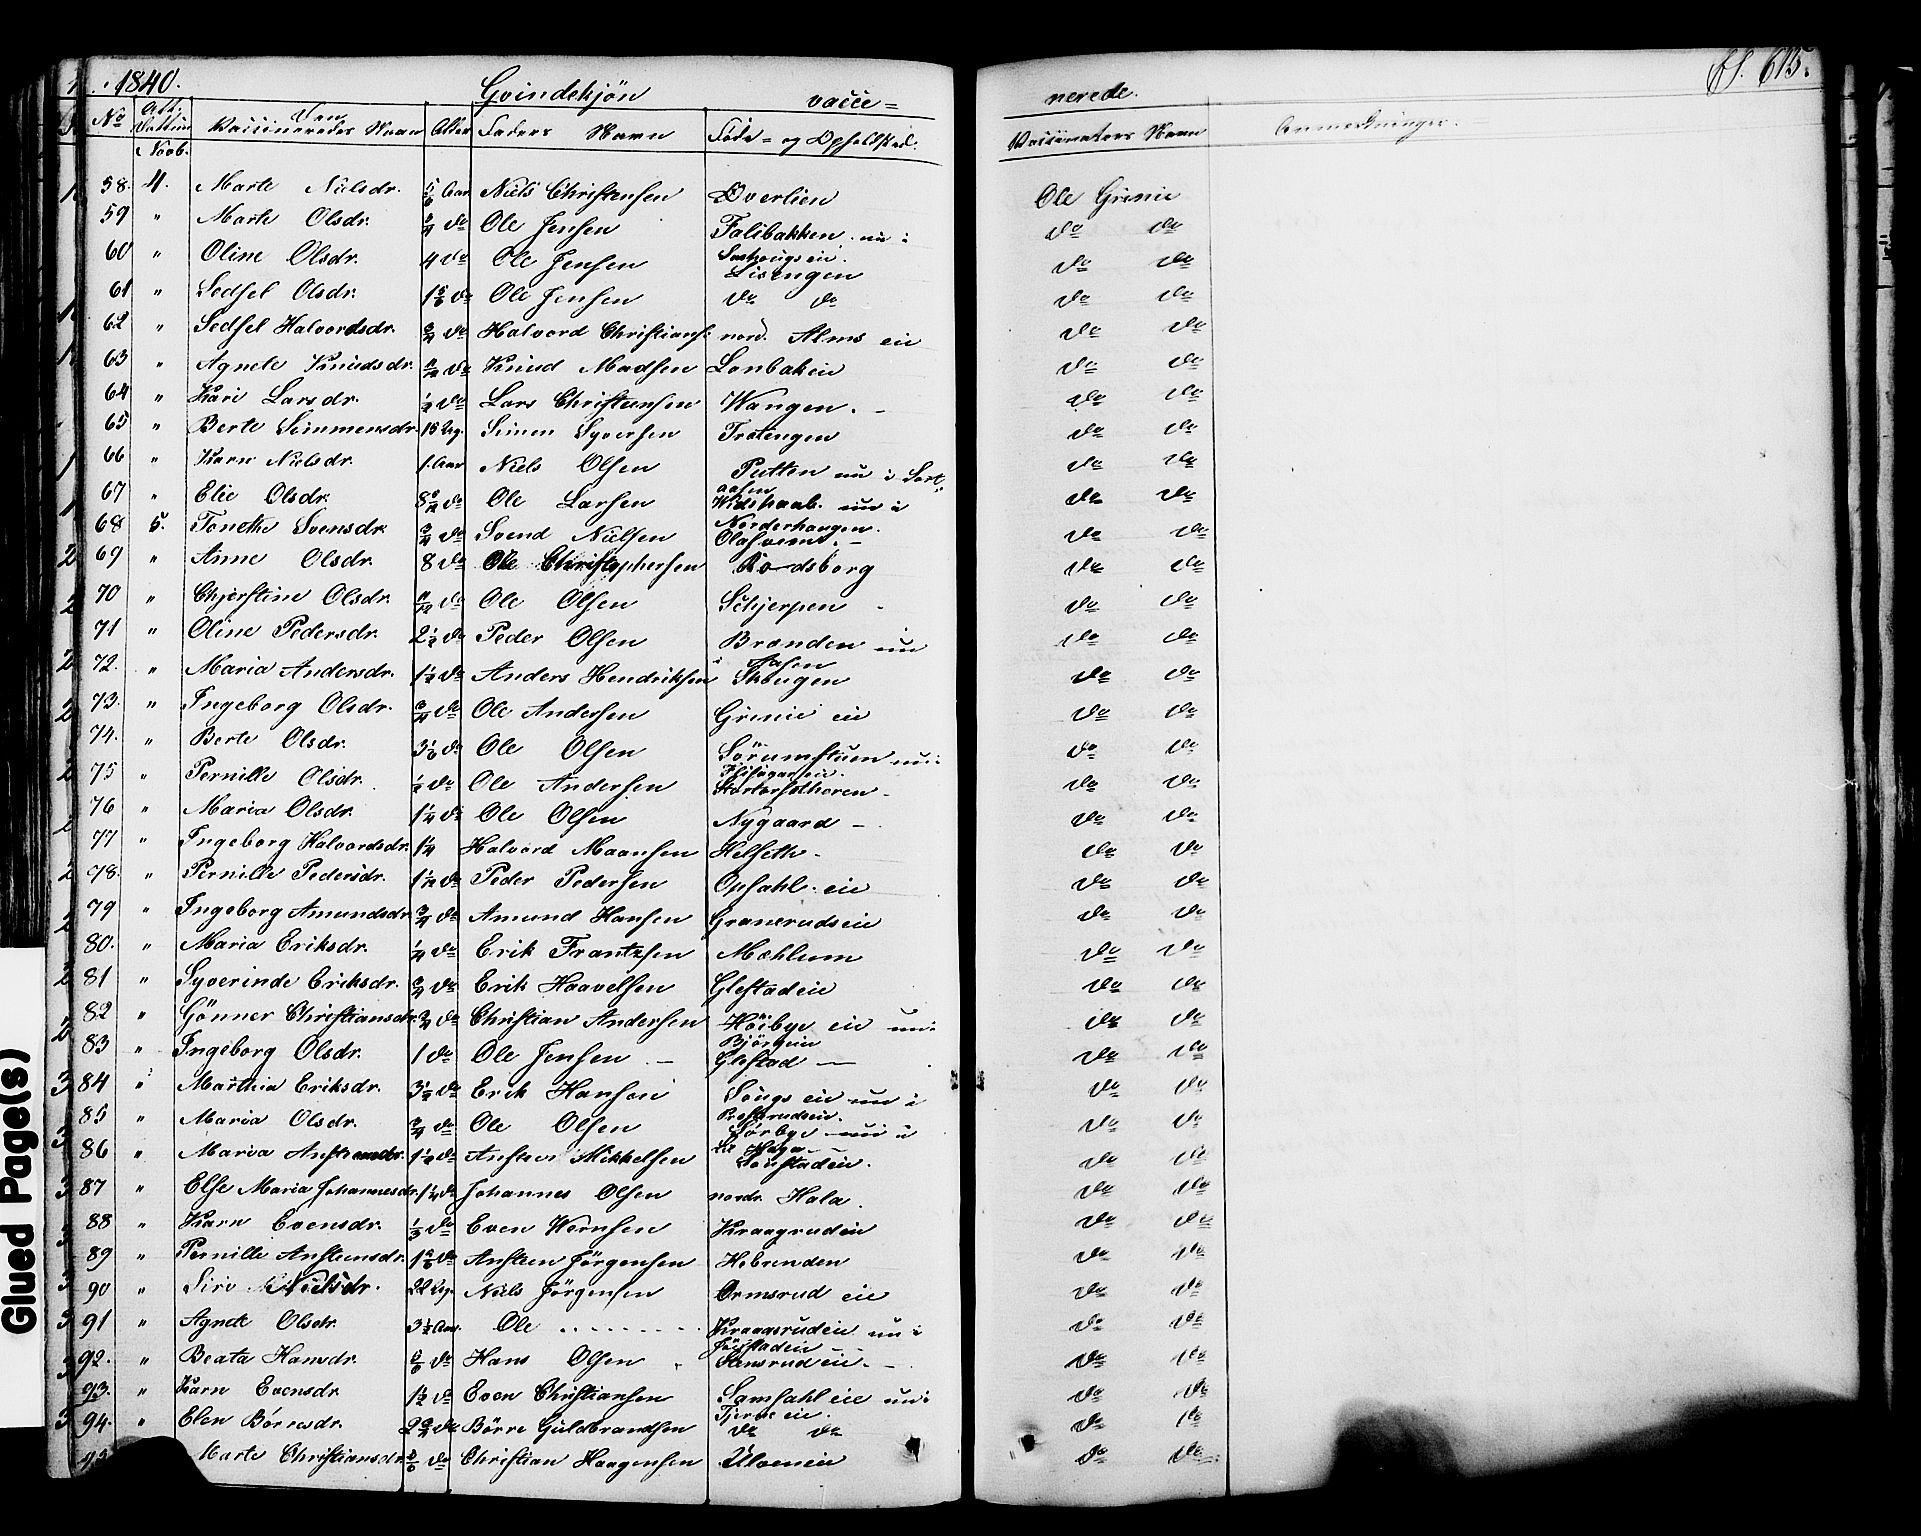 1840. Qvindekjön vacci= nerede. fl. 615.
No Att. Dattum Den Vaccineredes Navn Alder Faders Navn Föde= og Opholdsted. Vaccinators Navn Anmerkninger.
Novb.
58. 4. Marte Nielsdr. 5/6 Aar Niels Christensen Överlien Ole Grinie
59 " Marte Olsdr. 3/4 do Ole Jensen Falibakken nu i do do
60 " Oline Olsdr. 4 do Ole Jensen Lisengen do do
61 " Sedsel Olsdr. do Ole Jensen do do do do
62 " Sedsel Halvordsdr. 3/4 do Halvord Christians: nord. Alms eie do do
63 " Agnete Knudsdr. do Knud Madsen Lonbakeie do do
64 " Kari Larsdr. 1/2 do Lars Christensen Wangen. - do do
65 " Berte Simmensdr. 18 Ug. Simen Syversen Trotengen do do
66 " Karn Nielsdr. 1. Aar Niels Olsen Putten nu i Sort: do do
aasen
67 " Elie Olsdr. do Ole Larsen Widskaab. nu i do do
Norderhaugen.
68 5. Tonethe Svensdr. 3/4 do Svend Nielsen do do
69 " Anne Olsdr. 8 do Ole Christophersen Rodsborg do do
70 " Chjerstine Olsdr. 11/12 do Ole Olsen Schjerpen - do do
71 " Oline Pedersdr. 2 1/2 do Peder Olsen Brænden nu do do
i Aasen
72. " Maria Andersdr. 1 1/2 do Anders Hendriksen Skougen do do
73. " Ingeborg Olsdr. 3/4 do Ole Andersen Grinie eie do do
74. " Berte Olsdr. 3 1/6 do Ole Olsen Sörumstuen nu i do do
75 " Pernille Olsdr. 1/2 do Ole Andersen do do
76 " Maria Olsdr. 1 1/4 do Ole Olsen Nygaard - do do
77 " Ingeborg Halvordsdr. 1 1/4 Halvord Maansen Helseth - do do
78. " Pernille Pedersdr. 1 1/12 do Peder Pedersen Opsahl. eie do do
79 " Ingeborg Amundsdr. 3/4 do Amund Hansen Granerudseie do do
80. " Maria Eriksdr. 1/4 do Erik Frantzsen Mæhlum do do
81 " Syverinde Eriksdr. 3/4 do Erik Haavelsen Glestadeie do do
82 " Gönner Christiansdr. 3/4 do Christian Andersen Höibye eie nu i do do
Björgeie
83 " Ingeborg Olsdr. 1 do Ole Jensen - Glestad - do do
84 " Marthia Eriksdr. 3 1/2 do Erik Hansen Sougs eie nu i do do
Presterudseie.
85 " Maria Olsdr. 3/4 do Ole Olsen Sörbye nu i do do
Haga
86 " Maria Anstensdr. 1 1/2 do Ansten Mikkelsen do do
87 " Else Maria Johannesdr. 1 1/4 do Johannes Olsen nordr. Hala. do do
88 " Karn Evensdr. 1/3 do Even Wernsen Kraagrudeie do do
89 " Pernille Anstensdr. do Ansteen Jörgensen Hebrenden do do
90 " Siri Nielsdr. 22 Ug. Niels Jörgensen Ormsrud eie do do
91 " Agnete Olsdr. 3 1/2 Aar. Ole ........ Kraagsrudeie nu i do do
92. " Beata Hansdr. 5/6 do Hans Olsen do do
93. " Karn Evensdr. 1 1/2 do Even Christiansen Samsahl eie nu i do do
Tjerne eie.
94. " Elen Börresdr. 2 3/4 do Börre Guldbrandsen do do do do
Marte Christiansdr. do Christian Haagensen Ulveneie do do
Glued Page(s)